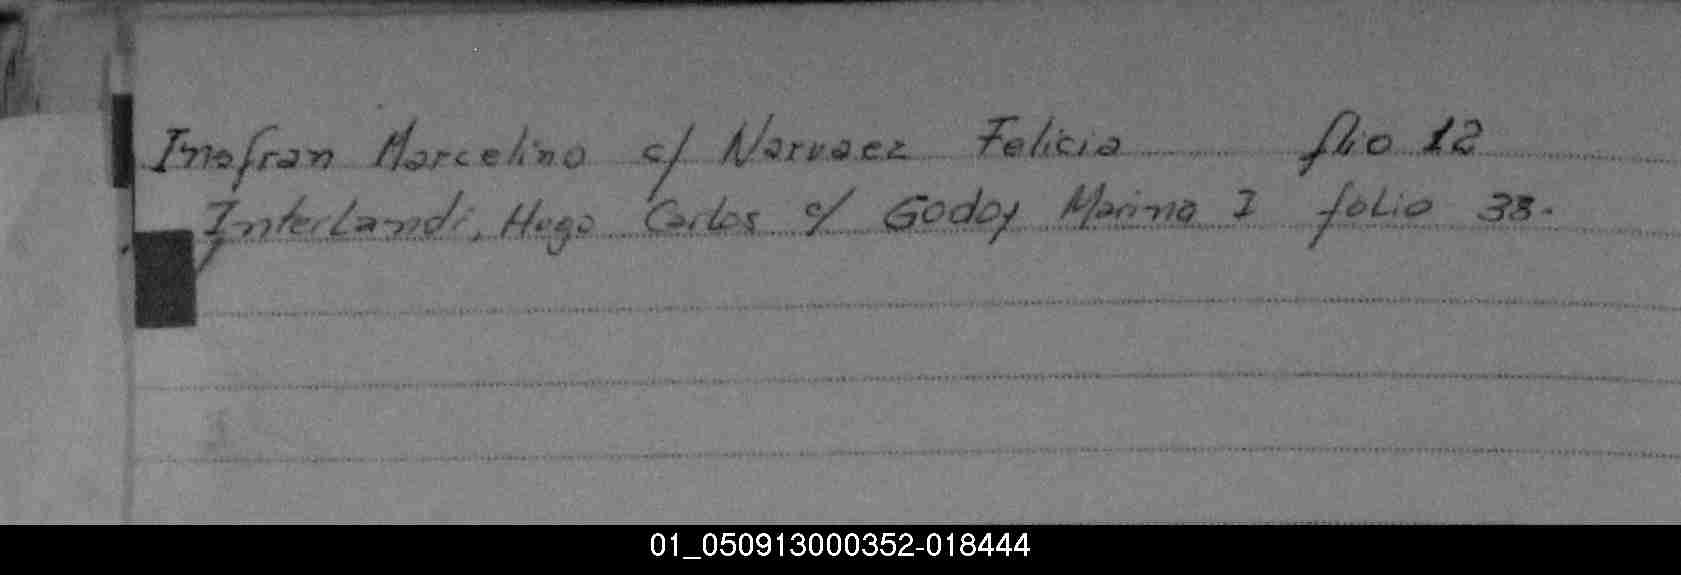 Insfran Marcelino c/ Narvaez Felicia flio 12
Interlandi, Hugo Carlos c/ Godoy Marina I folio 38.
01_050913000352-018444